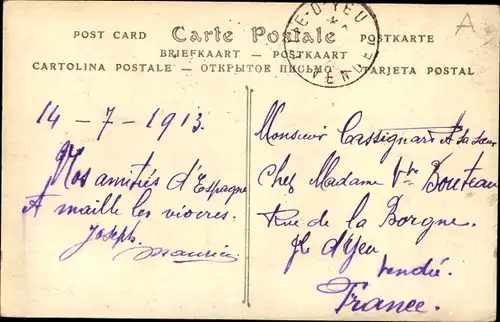 POST CARD Carte Postale POSTKARTE
BRIEFKAART — POSTKAART
CARTOLINA POSTALE — ОТКРЫТОЕ ПИСЬМО — TARJETA POSTAL
E-D'YEU
VENDEE
A
14 - 7 - 1913.
Nos amitiés d'Espagne
A maille les viocres.
Joseph.
Maurice
Monsieur Cassignard et sa sœur
chez Madame Vve Bouteau
Rue de la Borgne
Ile d'Yeu
Vendée.
France.